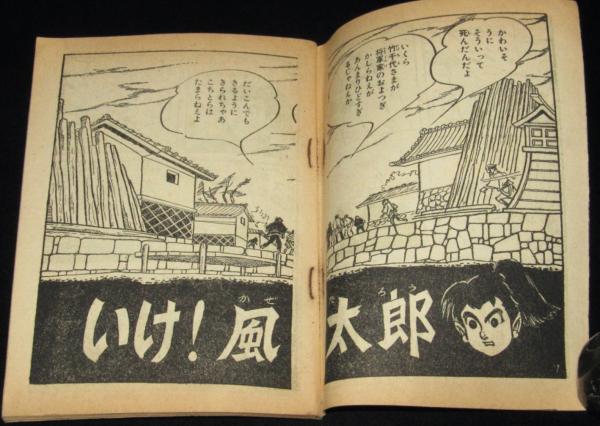 かわいそ
うに
そういって
死んだんだよ
いくら
竹千代さまが
将軍家のおよつぎ
かしらねえが
あんまりひどすぎ
るじゃねえか
だいこんでも
きるように
きられちゃあ
こちとらは
たまらねえよ
いけ!風太郎
かぜ
たろう